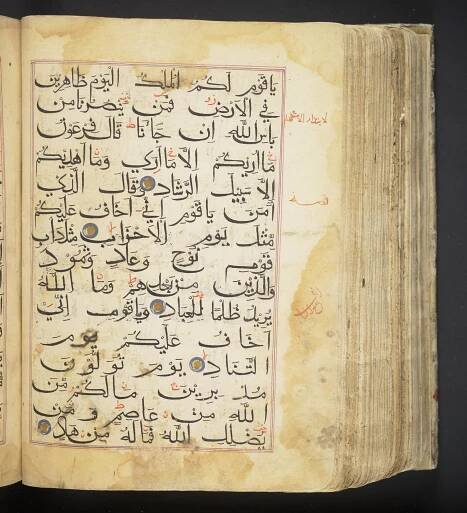 يا قوم لكم الملك اليوم ظاهرين
في الارض فمن ينصرنا من
باس الله ان جانا قال فرعون
ما اريكم الا ما اري وما اهديكم
الا سبيل الرشاد وقال الذي
امن يا قوم اني اخاف عليكم
مثل يوم الاحزاب مثل داب
قوم نوح وعاد وثمود
والذين من بعدهم وما الله
يريد ظلما للعباد ويا قوم اني
اخاف عليكم يوم
التناد يوم تولون
مدبرين ما لكم من
الله من عاصم ومن
يضلل الله فما له من هاد